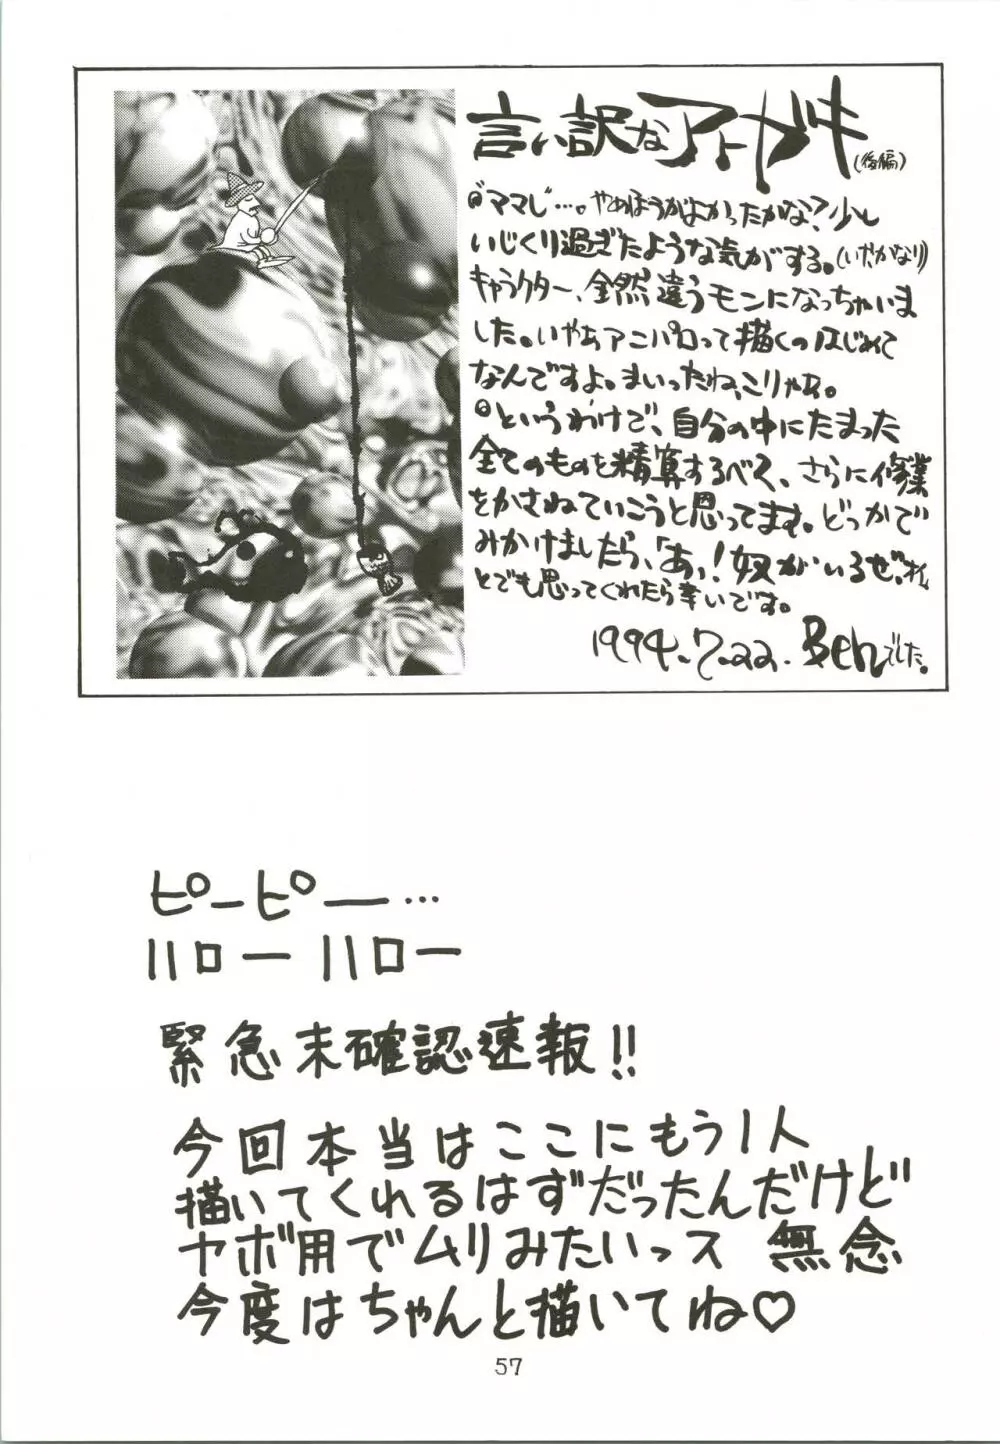 言い訳なアトガキ(後編)
"ママレ"…。やめほうがよかったかな?少し
いじくり過ぎたような気がする。(いやかなり)
キャラクター、全然違うモンになっちゃいま
した。いやあアニパロって描くのはじめて
なんですよ。まいったね、こりゃあ。
というわけで、自分の中にたまった
全てのものを精算するべく、さらに修業
をかさねていこうと思ってます。どっかで
みかけましたら、「あっ!奴がいるぜ。
とでも思ってくれたら幸いです。
1994.7.22. Benでした。
ピーピー…
ハロー ハロー
緊急未確認速報!!
今回本当はここにもう1人
描いてくれるはずだったんだけど
ヤボ用でムリみたいっス 無念
今度はちゃんと描いてね♡
57